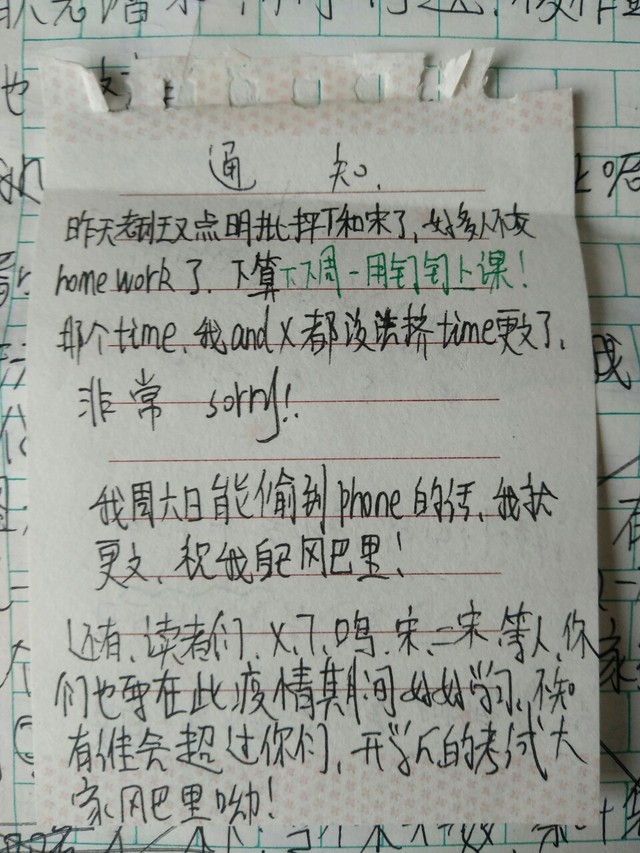 通 知.
昨天老班又点明批抨丁和宋了,好多人不交
home work 了.下算下下周一用钉钉上课!
那个time,我and X都没法挤time更文了,
非常 sorry!!
我周六日能偷到phone的话,我就
更文,祝我自己冈巴里!
还有,读者们,X,丁,鸣,宋,二宋等人,你
们也要在此疫情其间好好学习,不知
有谁会超过你们,开学后的考试大
家冈巴里呦!